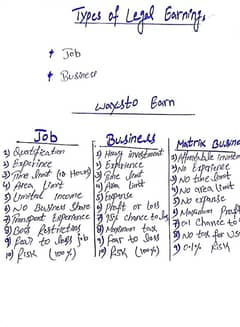 Types of Legal Earnings
* Job
* Business
ways to Earn
Job
1) Qualification
2) Experience
3) Time limit (10 Hours)
4) Area Limit
5) Limited Income
6) No Business Share
7) Transport Experience
8) Boss Restriction
9) Fear to loss job
10) Risk (100%)
Business
1) Heavy investment
2) Experience
3) Time limit
4) Area limit
5) Expense
6) Profit or loss
7) chance to loss
8) Maximum tax
9) fear to loss
10) Risk (100%)
Matrix Busin
1) Affordable invest
2) No Experience
3) No time limit
4) No area limit
5) No expense
6) Maximum Profit
7) 0.1 chance to
8) No tax for
9) 0.1% Risk